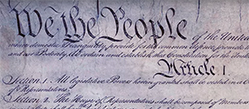 We the People of the United
insure domestic Tranquility, provide for the common defence, promote
and our Posterity, do ordain and establish this Constitution for the United
Article I
Section 1. All legislative Powers herein granted shall be vested in a
of Representatives.
Section 2. The House of Representatives shall be composed of Mem